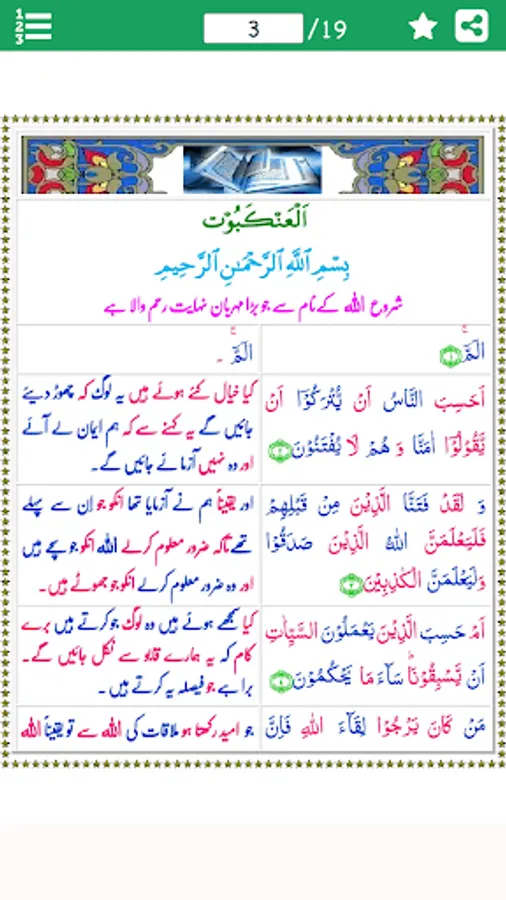 1
2
3
3 /19
اَلْعَنْكَبُوْت
بِسْمِ اللّٰهِ الرَّحْمٰنِ الرَّحِيْمِ
شروع اللہ کے نام سے جو بڑا مہربان نہایت رحم والا ہے
الٓمّٓ ۚ ﴿۱﴾
الٓمّٓ ۚ ۔
اَحَسِبَ النَّاسُ اَنْ يُّتْرَكُوْۤا اَنْ
يَّقُوْلُوْۤا اٰمَنَّا وَ هُمْ لَا يُفْتَنُوْنَ ﴿۲﴾
کیا خیال کئے ہوئے ہیں یہ لوگ کہ چھوڑ دیئے
جائیں گے یہ کہنے سے کہ ہم ایمان لے آئے
اور وہ نہیں آزمائے جائیں گے۔
وَ لَقَدْ فَتَنَّا الَّذِيْنَ مِنْ قَبْلِهِمْ
فَلَيَعْلَمَنَّ اللّٰهُ الَّذِيْنَ صَدَقُوْا
وَلَيَعْلَمَنَّ الْكٰذِبِيْنَ ﴿۳﴾
اور یقیناً ہم نے آزمایا تھا انکو جو اِن سے پہلے
تھے تاکہ ضرور معلوم کرلے اللہ انکو جو سچے ہیں
اور وہ ضرور معلوم کرلے انکو جو جھوٹے ہیں۔
اَمْ حَسِبَ الَّذِيْنَ يَعْمَلُوْنَ السَّيِّاٰتِ
اَنْ يَّسْبِقُوْنَا ؕ سَآءَ مَا يَحْكُمُوْنَ ﴿۴﴾
کیا سمجھے ہوئے ہیں وہ لوگ جو کرتے ہیں برے
کام کہ یہ ہمارے قابو سے نکل جائیں گے۔
برا ہے جو فیصلہ یہ کرتے ہیں ۔
مَنْ كَانَ يَرْجُوْا لِقَآءَ اللّٰهِ فَاِنَّ
جو امید رکھتا ہو ملاقات کی اللہ سے تو یقیناً اللہ